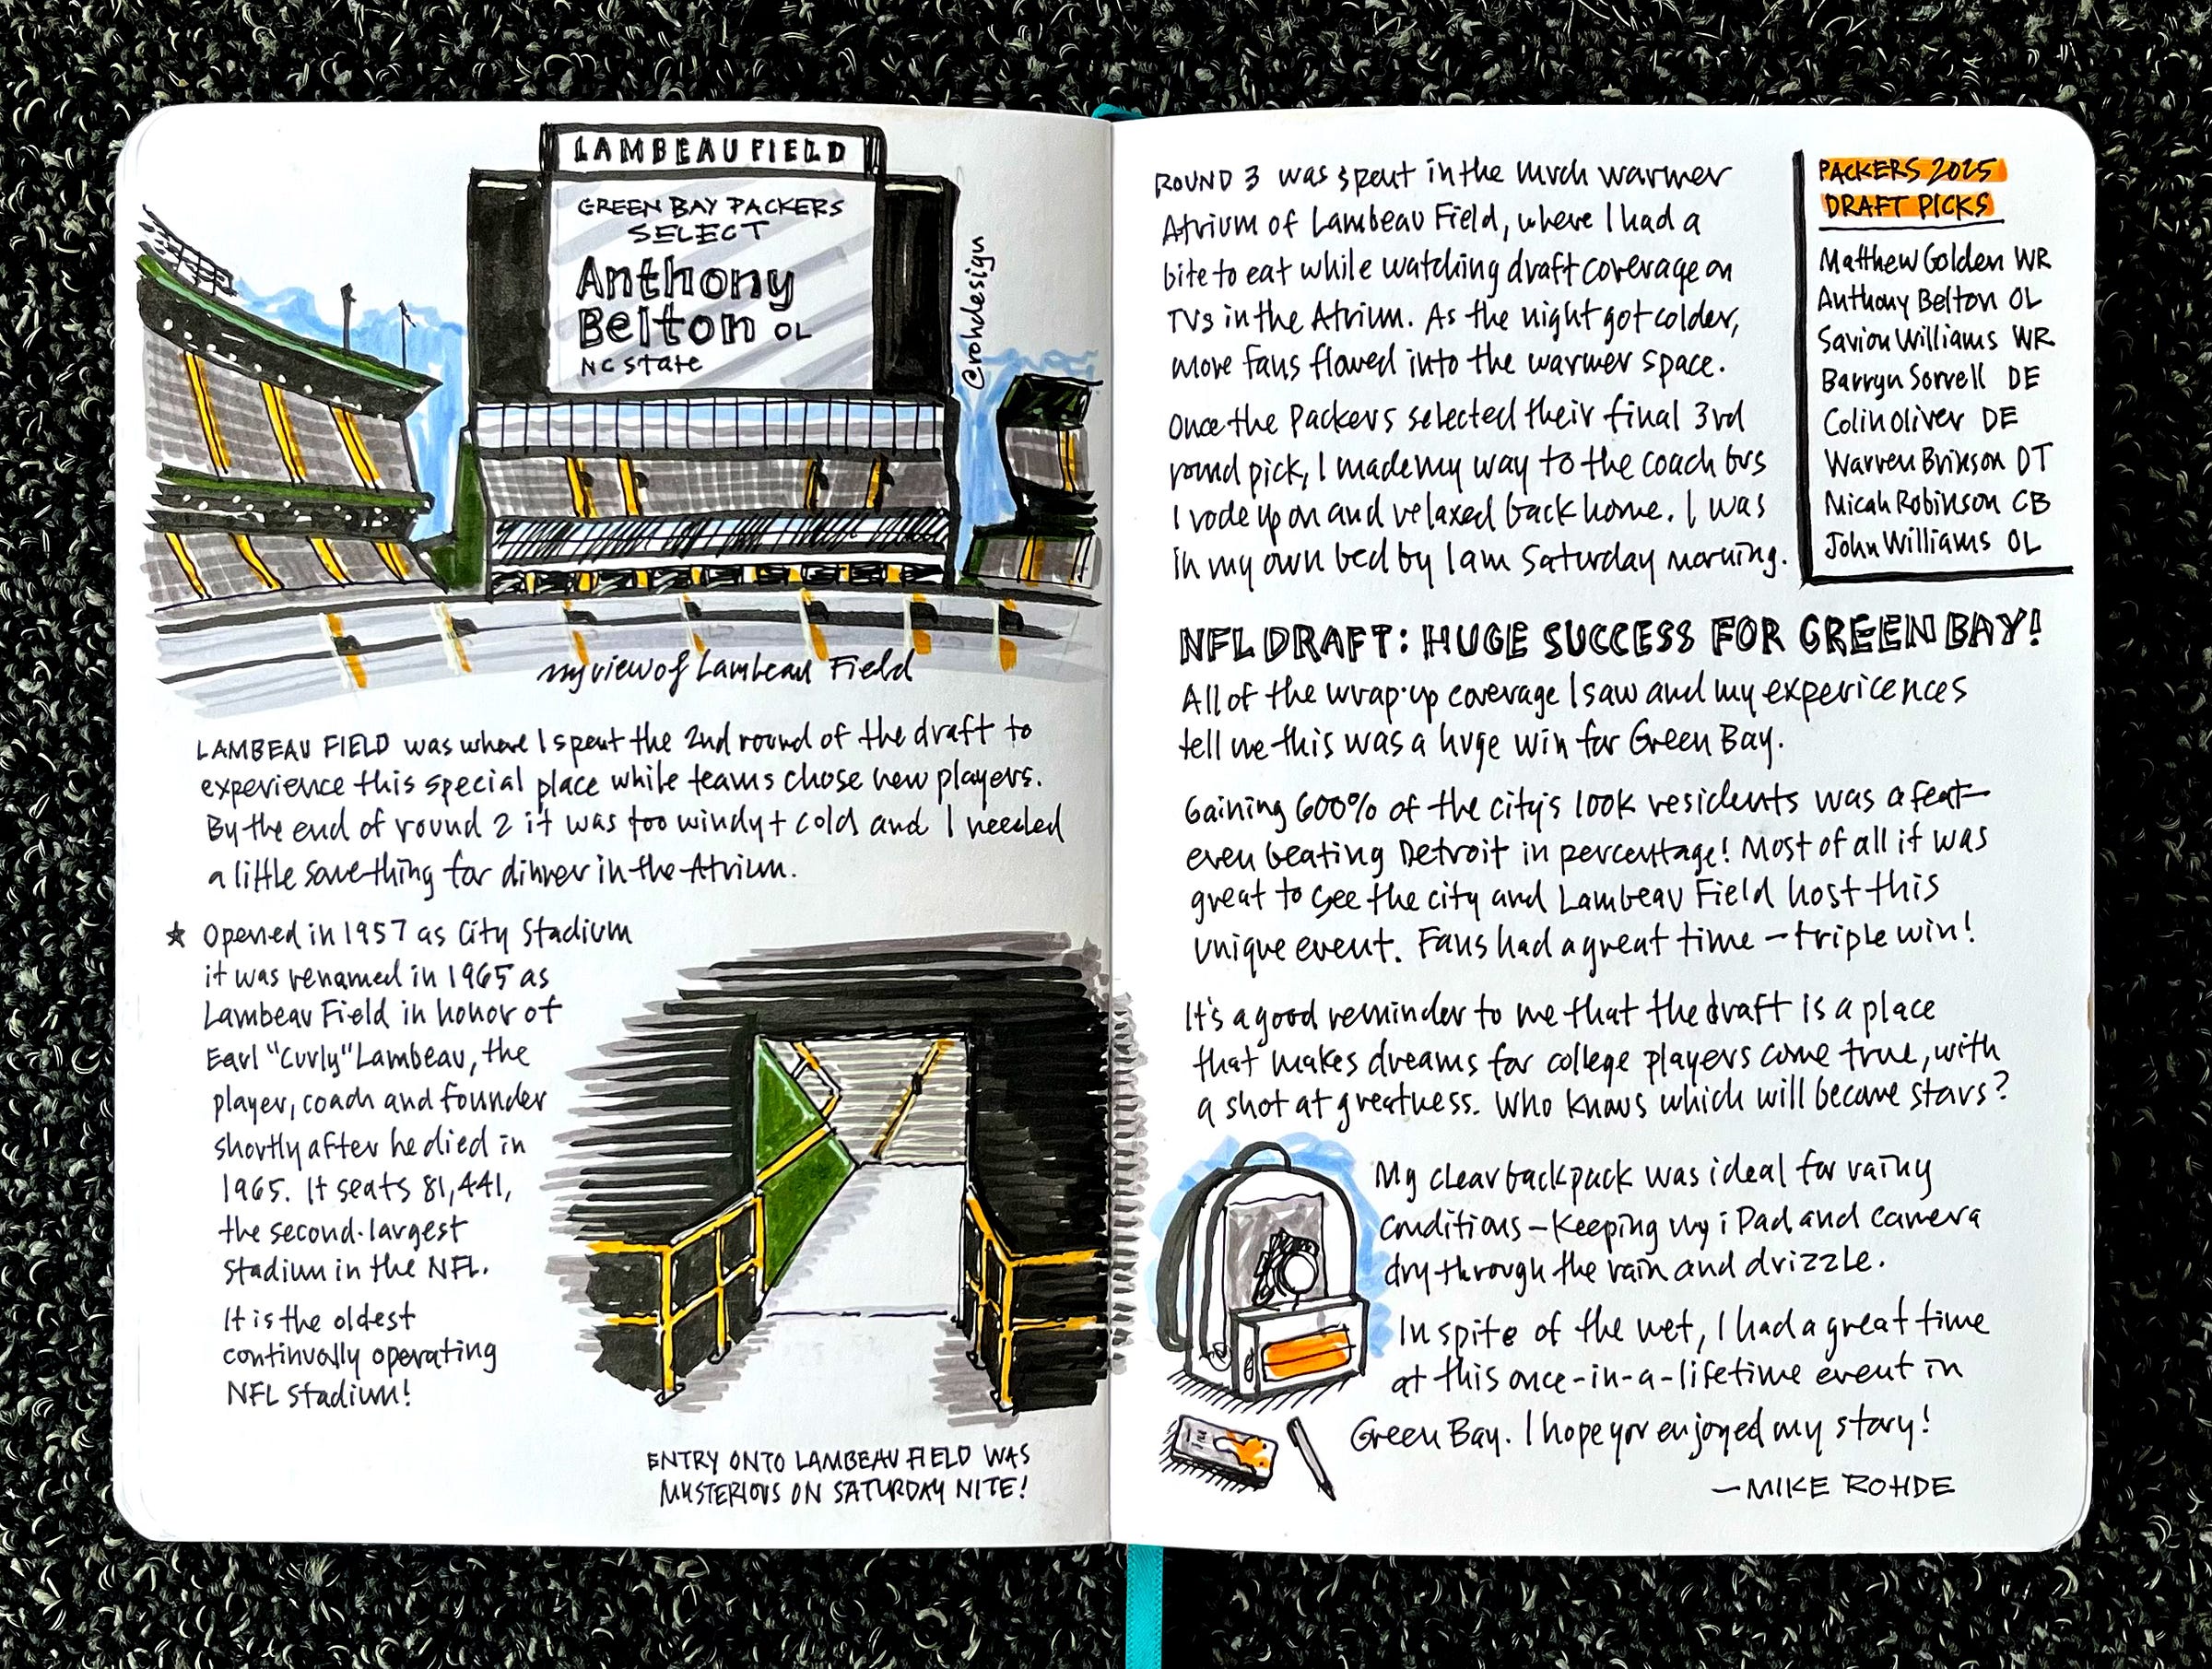 LAMBEAU FIELD
GREEN BAY PACKERS
SELECT
Anthony
Belton OL
NC State
@rohdesign
my view of Lambeau Field
LAMBEAU FIELD was where I spent the 2nd round of the draft to
experience this special place while teams chose new players.
By the end of round 2 it was too windy + cold and I needed
a little something for dinner in the Atrium.
★ Opened in 1957 as City Stadium
it was renamed in 1965 as
Lambeau Field in honor of
Earl "Curly" Lambeau, the
player, coach and founder
shortly after he died in
1965. It seats 81,441,
the second-largest
Stadium in the NFL.
It is the oldest
continually operating
NFL Stadium!
ENTRY ONTO LAMBEAU FIELD WAS
MYSTERIOUS ON SATURDAY NITE!
ROUND 3 was spent in the much warmer
Atrium of Lambeau Field, where I had a
bite to eat while watching draft coverage on
TVs in the Atrium. As the night got colder,
more fans flowed into the warmer space.
Once the Packers selected their final 3rd
round pick, I made my way to the coach bus
I rode up on and relaxed back home. I was
in my own bed by 1am Saturday morning.
PACKERS 2025
DRAFT PICKS
Matthew Golden WR
Anthony Belton OL
Savion Williams WR
Barryn Sorrell DE
Colin Oliver DE
Warren Brinson DT
Micah Robinson CB
John Williams OL
NFL DRAFT: HUGE SUCCESS FOR GREEN BAY!
All of the wrap-up coverage I saw and my expericences
tell me this was a huge win for Green Bay.
Gaining 600% of the city's 100k residents was a feat—
even beating Detroit in percentage! Most of all it was
great to see the city and Lambeau Field host this
unique event. Fans had a great time — triple win!
It's a good reminder to me that the draft is a place
that makes dreams for college players come true, with
a shot at greatness. Who knows which will become stars?
My clear backpack was ideal for rainy
conditions — keeping my iPad and camera
dry through the rain and drizzle.
In spite of the wet, I had a great time
at this once-in-a-lifetime event in
Green Bay. I hope you enjoyed my story!
—MIKE ROHDE